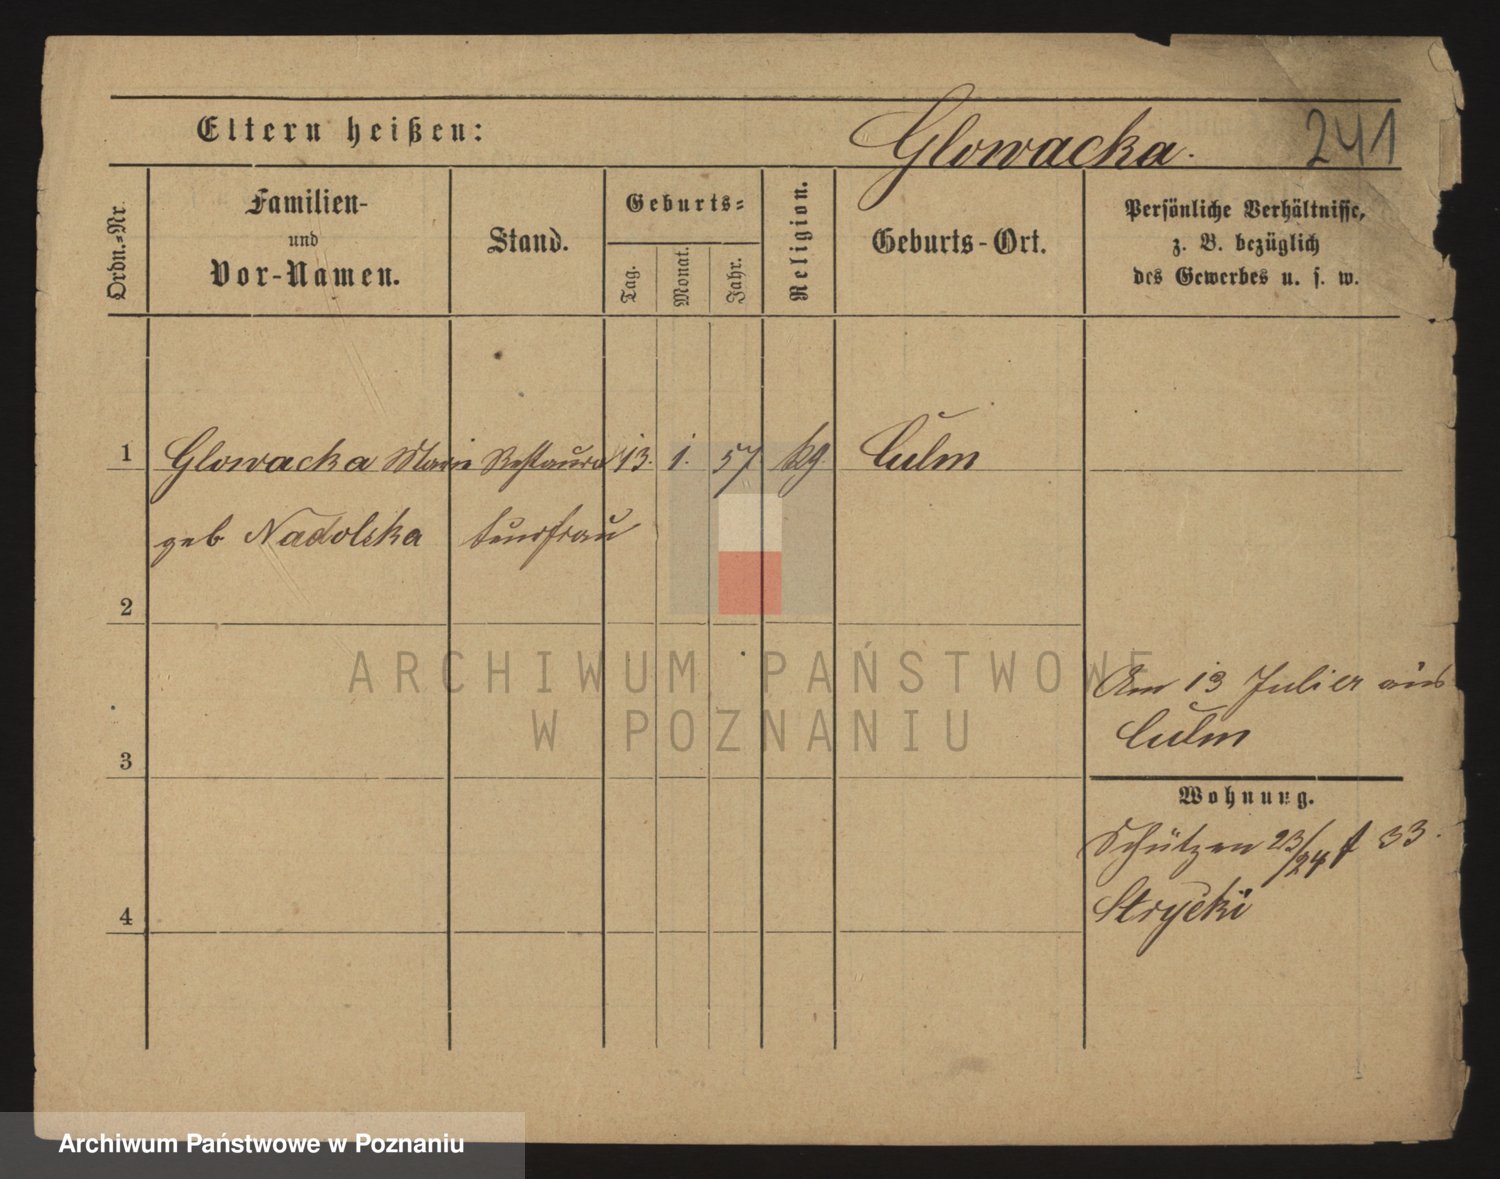 Eltern heißen:
Glowacka.
241
Ordn.-Nr.
Familien-
und
Vor-Namen.
Stand.
Geburts-
Tag.
Monat.
Jahr.
Religion.
Geburts-Ort.
Persönliche Verhältnisse,
z. B. bezüglich
des Gewerbes u. s. w.
1 Glowacka Marie Restaura 13. 1. 57 kg. Culm
geb Nadolska teursfrau
2
Am 13 Juli er aus
Culm
3
Wohnung.
Schützen 23/24 f 33.
Strycki
4
ARCHIWUM PAŃSTWOWE
W POZNANIU
Archiwum Państwowe w Poznaniu